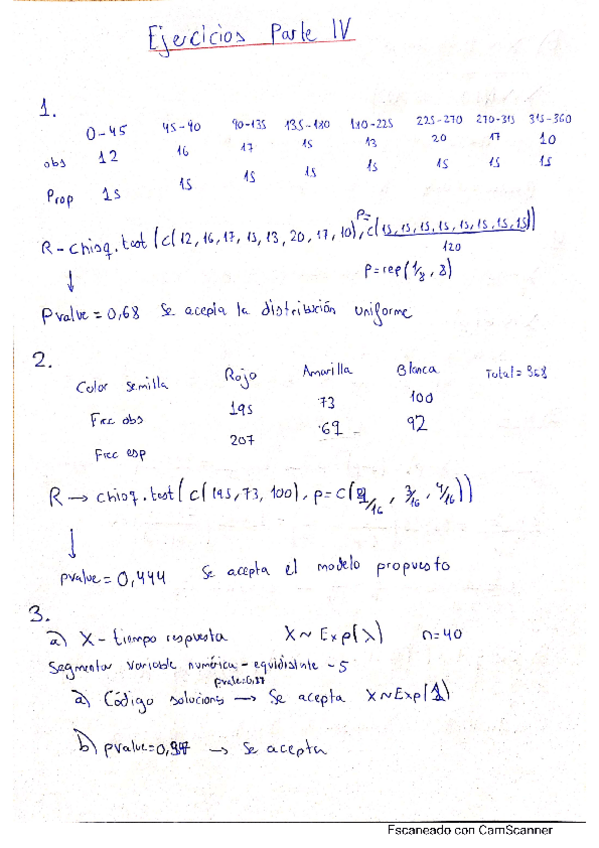 Ejercicios Parte IV
1.
0-45 45-90 90-135 135-180 180-225 225-270 270-315 315-360
obs 12 16 17 15 13 20 17 10
Prop 15 15 15 15 15 15 15 15
R-chisq.test(c(12,16,17,15,13,20,17,10), p=c(15,15,15,15,15,15,15,15))
120
p=rep(1/8,8)
Pvalue = 0,68 Se acepta la distribución uniforme
2.
Color semilla Rojo Amarilla Blanca Total = 368
Frec obs 195 73 100
Frec esp 207 69 92
R → chisq.test(c(195,73,100), p=c(9/16, 3/16, 4/16))
pvalue = 0,444 Se acepta el modelo propuesto
3.
a) X - tiempo respuesta X~Exp(λ) n=40
Segmentar variable numérica - equidistante - 5
pvalue=0,37
a) Código solucions → Se acepta X~Exp(1)
b) pvalue=0,947 → Se acepta
Escaneado con CamScanner